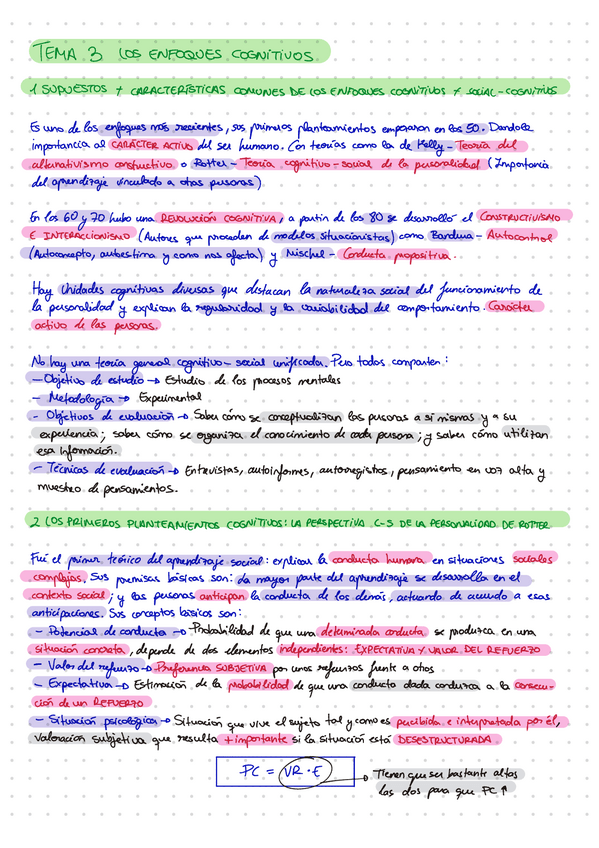 TEMA 3 LOS ENFOQUES COGNITIVOS
1 SUPUESTOS Y CARACTERÍSTICAS COMUNES DE LOS ENFOQUES COGNITIVOS Y SOCIAL-COGNITIVOS
Es uno de los enfoques más recientes, sus primeros planteamientos empezaron en los 50. Dandole
importancia al CARÁCTER ACTIVO del ser humano. Con teorías como la de Kelly - Teoría del
alternativismo constructivo o Rotter - Teoría cognitivo-social de la personalidad (Importancia
del aprendizaje vinculado a otras personas)
En los 60 y 70 hubo una REVOLUCIÓN COGNITIVA, a partir de los 80 se desarrolló el CONSTRUCTIVISMO
E INTERACCIONISMO (Autores que proceden de modelos situacionistas) como Bandura - Autocontrol
(Autoconcepto, autoestima y como nos afecta) y Mischel - Conducta propositiva.
Hay Unidades cognitivas diversas que destacan la naturaleza social del funcionamiento de
la personalidad y explican la regularidad y la variabilidad del comportamiento. Carácter
activo de las personas.
No hay una teoría general cognitivo-social unificada. Pero todos comparten:
- Objetivo de estudio → Estudio de los procesos mentales
- Metodología → Experimental
- Objetivos de evaluación → Saber cómo se conceptualizan las personas a sí mismas y a su
experiencia; saber cómo se organiza el conocimiento de cada persona; y saber cómo utilizan
esa información.
- Técnicas de evaluación → Entrevistas, autoinformes, autorregistros, pensamiento en voz alta y
muestreo de pensamientos.
2 LOS PRIMEROS PLANTEAMIENTOS COGNITIVOS: LA PERSPECTIVA C-S DE LA PERSONALIDAD DE ROTTER
Fue el primer teórico del aprendizaje social: explicar la conducta humana en situaciones sociales
complejas. Sus premisas básicas son: la mayor parte del aprendizaje se desarrolla en el
contexto social; y las personas anticipan la conducta de los demás, actuando de acuerdo a esas
anticipaciones. Sus conceptos básicos son:
- Potencial de conducta → Probabilidad de que una determinada conducta se produzca en una
situación concreta, depende de dos elementos independientes: EXPECTATIVA Y VALOR DEL REFUERZO
- Valor del refuerzo → Preferencia SUBJETIVA por unos refuerzos frente a otros
- Expectativa → Estimación de la probabilidad de que una conducta dada conduzca a la consecu-
ción de un REFUERZO
- Situación psicológica → Situación que vive el sujeto tal y como es percibida e interpretada por él,
valoración subjetiva que resulta + importante si la situación está DESESTRUCTURADA.
PC = VR · E → Tienen que ser bastante altas
las dos para que PC ↑